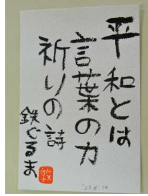 平和とは
言葉の力
祈りの詩
鉄ぐるま